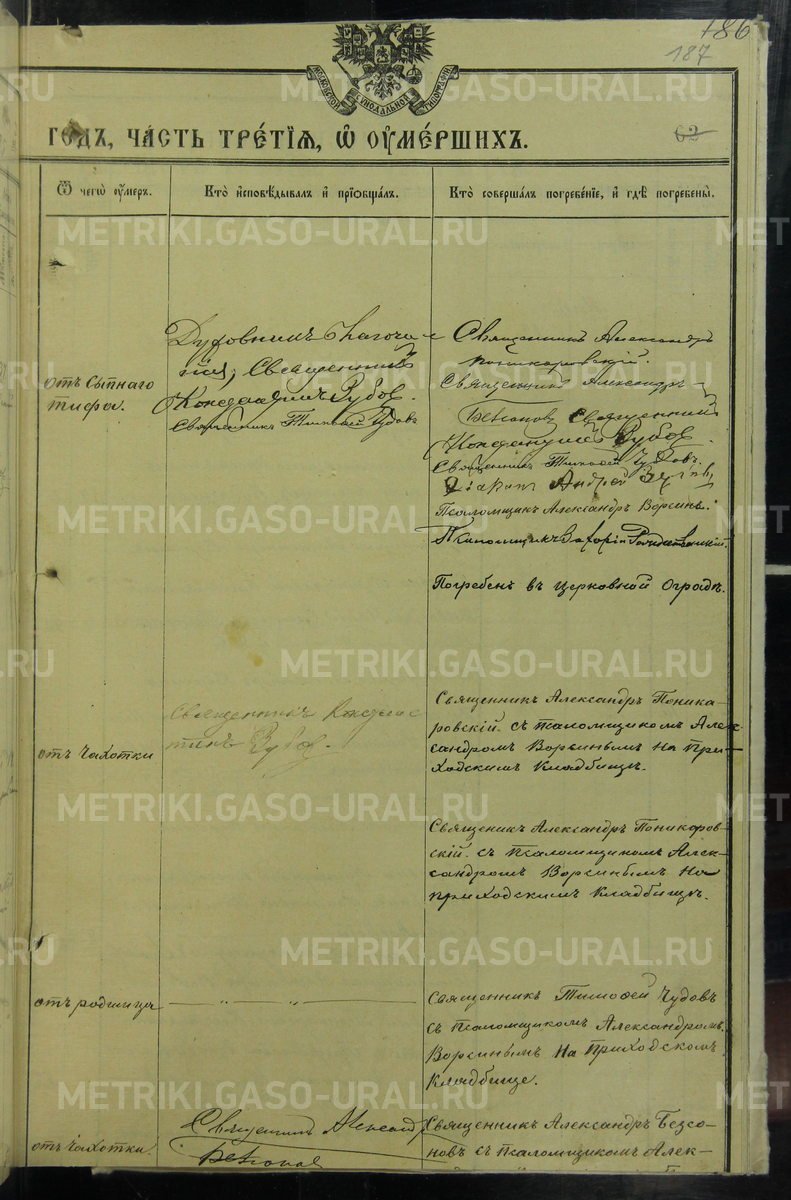 186
187
МОСКОВСКОЙ СѴНОДАЛЬНОЙ ТИПОГРАФІИ
ГОДЪ, ЧА́СТЬ ТРЕ́ТІѦ, Ѡ ОУМЕ́РШИХЪ.
62
Ѿ чегѡ оу́меръ.
Кто̀ и҆сповѣ́дывалъ и҆ прїѡбща́лъ.
Кто̀ соверша́лъ погребе́нїе, и҆ гдѣ̀ погребены̀.
отъ Сытнаго
тифа.
Духовникъ благочи-
нія, Священникъ
Константинъ Зубов.
Священникъ Тимофей Чудовъ
Священникъ Александръ
Поникаровскій.
Священникъ Александръ
Безсонов Священникъ
Константинъ Зубов.
Священникъ Тимофей Чудовъ.
Діаконъ Андрей
Псаломщикъ Александръ Ворсинъ.
Псаломщикъ
Погребенъ въ церковной Оградѣ.
отъ чахотки
Священникъ Констан-
тинъ Зубов.
Священникъ Александръ Поника-
ровскій съ псаломщикомъ Алек-
сандромъ Ворсинымъ На При-
ходскимъ Кладбищѣ.
Священникъ Александръ Поникоров-
скій съ Псаломщикомъ Алек-
сандромъ Ворсинымъ На
приходскимъ Кладбищѣ.
отъ родимца
— „ —
Священникъ Тимофей Чудовъ
съ Псаломщикомъ Александромъ
Ворсинымъ На Приходскомъ
Кладбище.
отъ чахотки
Священникъ Александръ
Безсонов
Священникъ Александръ Безсо-
новъ съ псаломщикомъ Алек-
METRIKI.GASO-URAL.RU